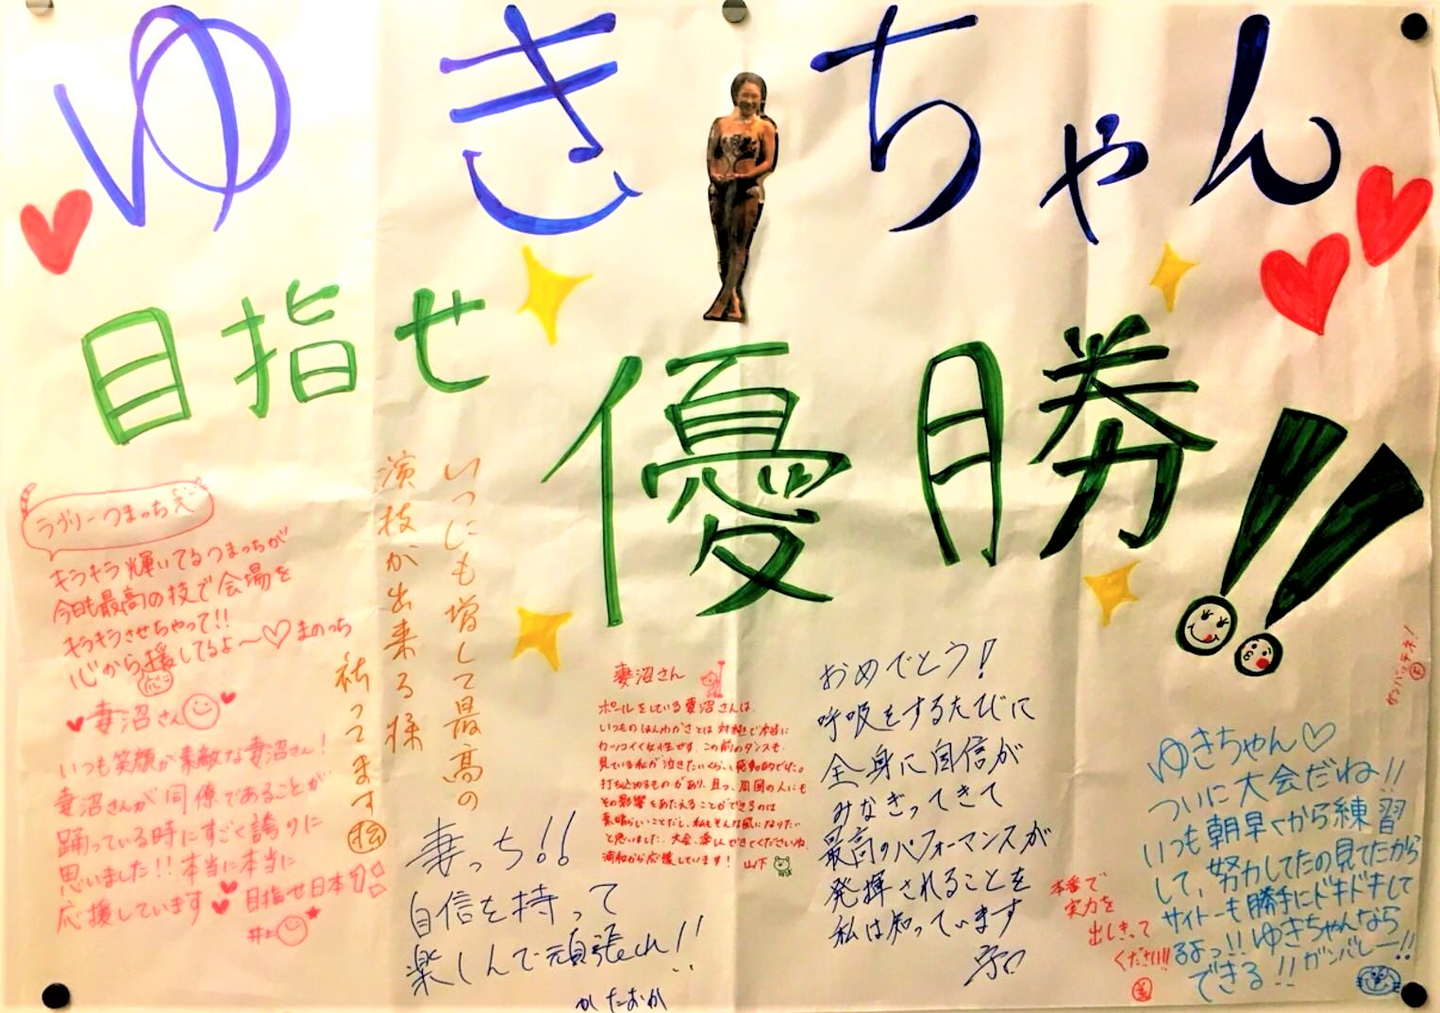 ゆきちゃん
目指せ
優勝!!
ラブリーつまっちへ
キラキラ輝いてるつまっちが
今日も最高の技で会場を
キラキラさせちゃって!!
心から応援してるよ〜♡まのっち
妻沼さん
いつも笑顔が素敵な妻沼さん!
妻沼さんが同僚であることが
踊っている時にすごく誇りに
思いました!!本当に本当に
応援しています♥目指せ日本一
井上
いつにも増して最高の
演技が出来る様
祈ってます
妻っち!!
自信を持って
楽しんで頑張れ!!
かたおか
妻沼さん
ポールをしている妻沼さんは、
いつものほんわかさとは対極で本当に
カッコイイ女性です。この前のダンスも
見ている私が泣きたいくらい感動的でした。
打ち込めるものがあり、且つ、周囲の人にも
その影響をあたえることができるのは
素晴らしいことだし、私もそんな風になりたい
と思いました。大会、楽しんできてくださいね。
浦和から応援しています! 山下
おめでとう!
呼吸をするたびに
全身に自信が
みなぎってきて
最高のパフォーマンスが
発揮されることを
私は知っています
本番で
実力を
出しきって
ください!!
ガンバッテネ!
ゆきちゃん♡
ついに大会だね!!
いつも朝早くから練習
して、努力してたの見てたから
サイトーも勝手にドキドキして
るよっ!!ゆきちゃんなら
できる!!ガンバレー!!